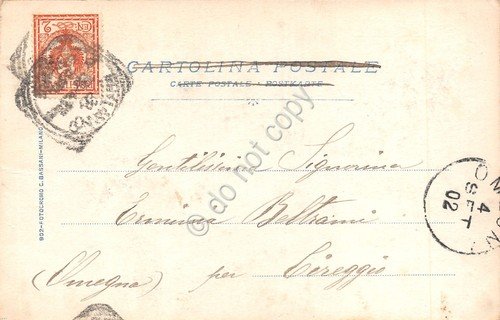 CEN. 2
CARTOLINA POSTALE
CARTE POSTALE - POSTKARTE
do not copy
Gentilissima Signorina
Erminia Beltrami
(Omegna) per Cireggio
4
SET
02
902 - FOTOCROMO C. BASSANI - MILANO